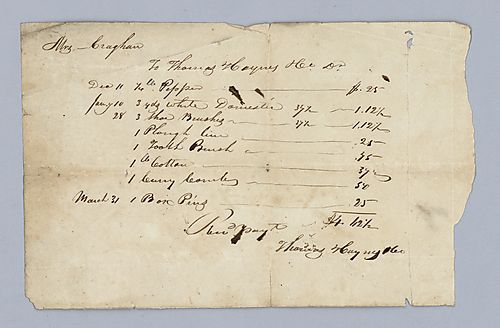 Mrs Craghan
To Thomas Haynes & Co Dr
Decr 11 ¾ lb Pepper $. 25
Jany 10 3 yds White Domestic 37½ 1.12½
28 3 Shoe Brushes 37½ 1.12½
1 Plough line 25
1 Tooth Brush
1 lb Cotton 37½
1 Curry Comb 50
March 21 1 Box Pins 25
$4.12½
Recd Payt
Thomas Haynes & Co